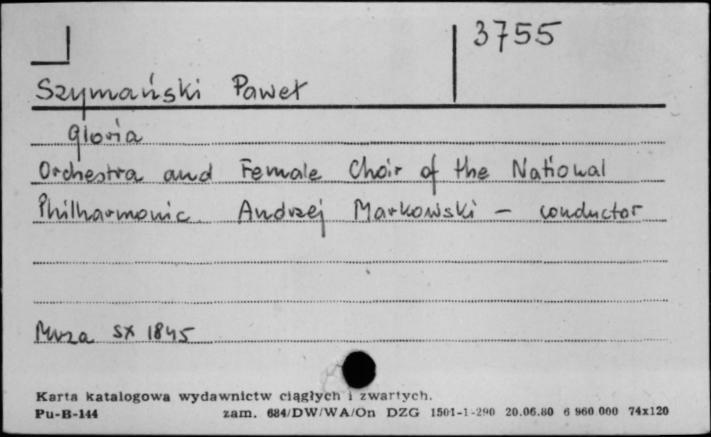 3755
Szymański Paweł
Gloria
Orchestra and Female Choir of the National
Philharmonic. Andrzej Markowski - conductor
Muza SX 1845
Karta katalogowa wydawnictw ciągłych i zwartych.
Pu-B-144 zam. 684/DW/WA/On DZG 1501-1-290 20.06.80 6 960 000 74x120